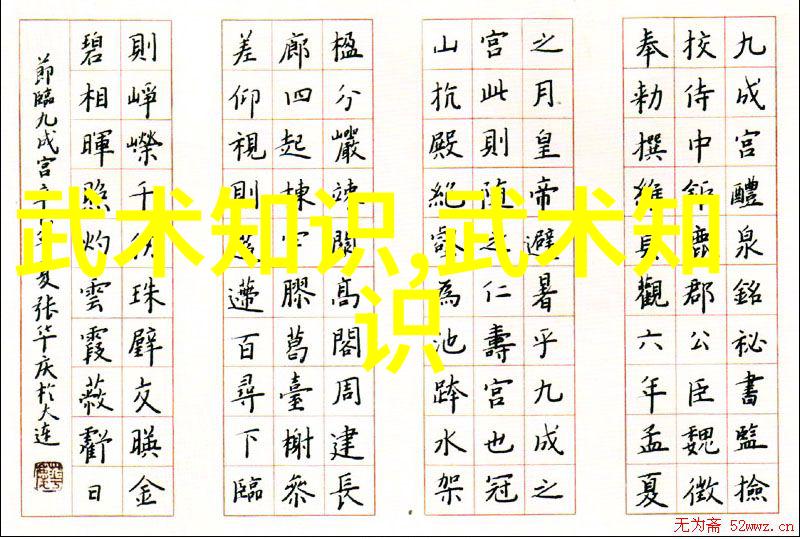 九成宮醴泉銘祕書監撿
挍侍中鉅鹿郡公臣魏徵
奉勅撰維貞觀六年孟夏
之月皇帝避暑乎九成之
宮此則随之仁壽宮也冠
山抗殿絶壑為池跨水架
楹分巖竦闕高閣周建長
廊四起棟宇膠葛臺榭參
差仰視則迢遰百尋下臨
則崢嶸千仞珠璧交暎金
碧相暉照灼雲霞蔽虧日
節臨九成宮辛年夏張华庆於大连
武术知识,武术知
识
无为斋 52wwz.cn